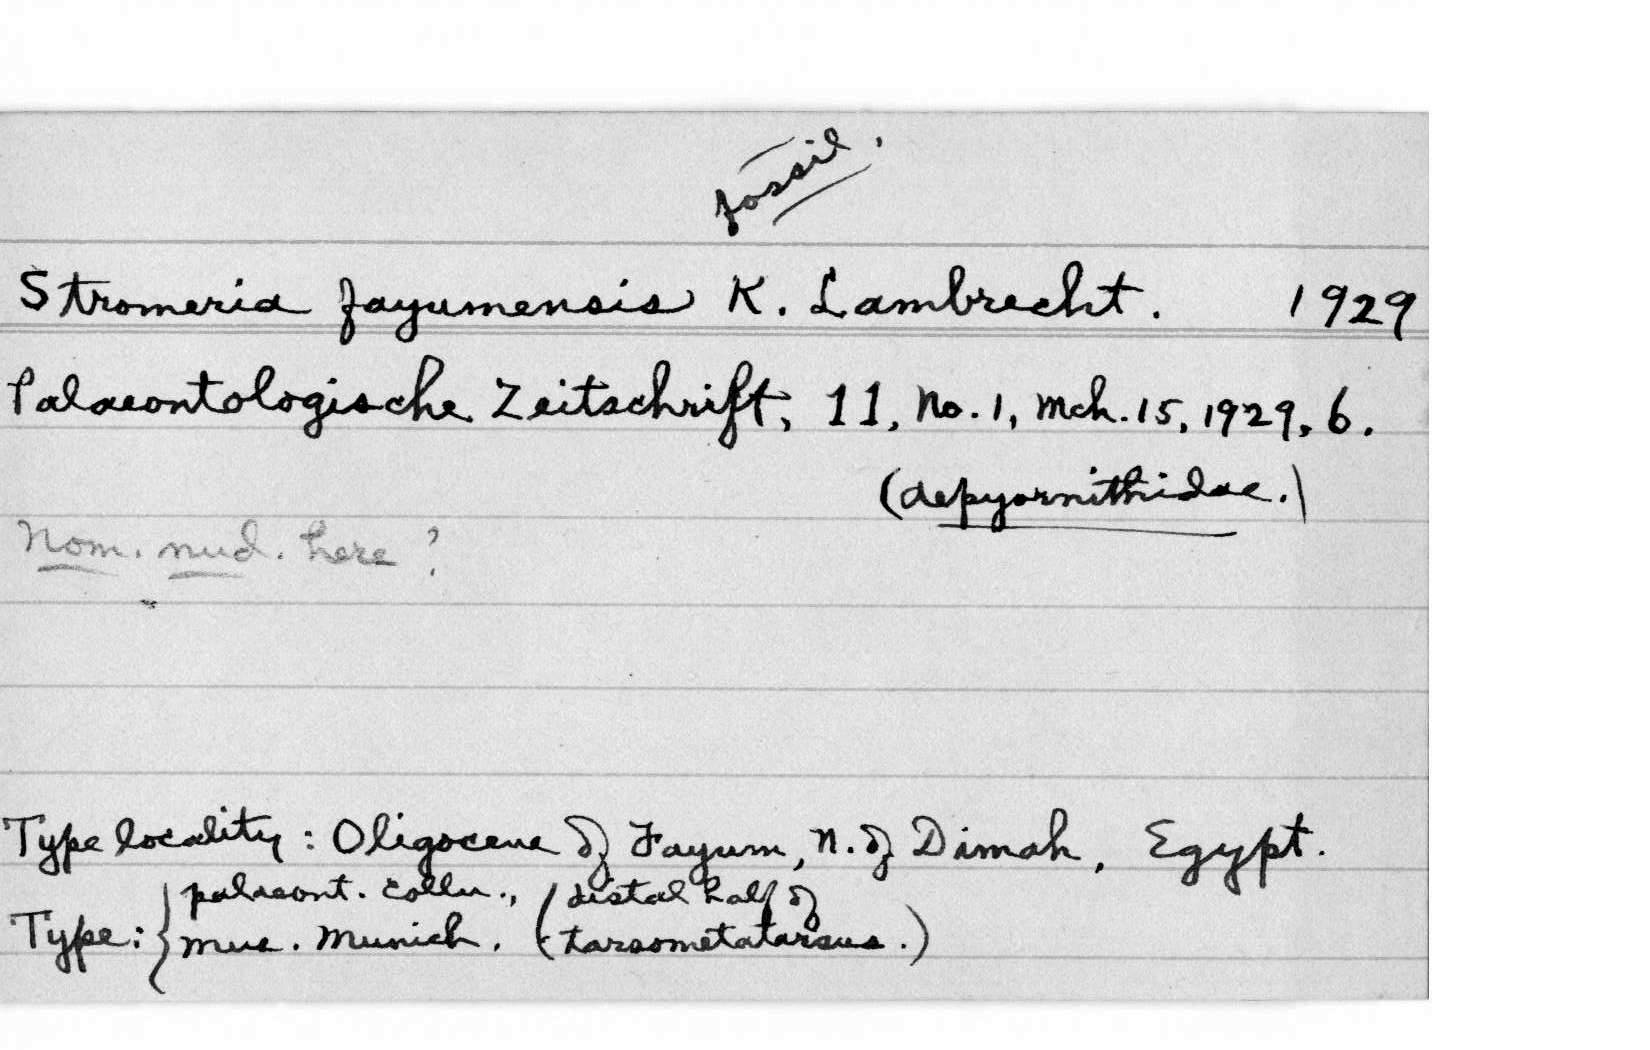 fossil.
Stromeria fayumensis K. Lambrecht. 1929
Palaeontologische Zeitschrift, 11, No. 1, Mch. 15, 1929, 6.
(Aepyornithidae.)
Nom. nud. here?
Type locality: Oligocene of Fayum, N. of Dimah, Egypt.
palaeont. colln., (distal half of
Type: { Mus. Munich. (tarsometatarsus.)